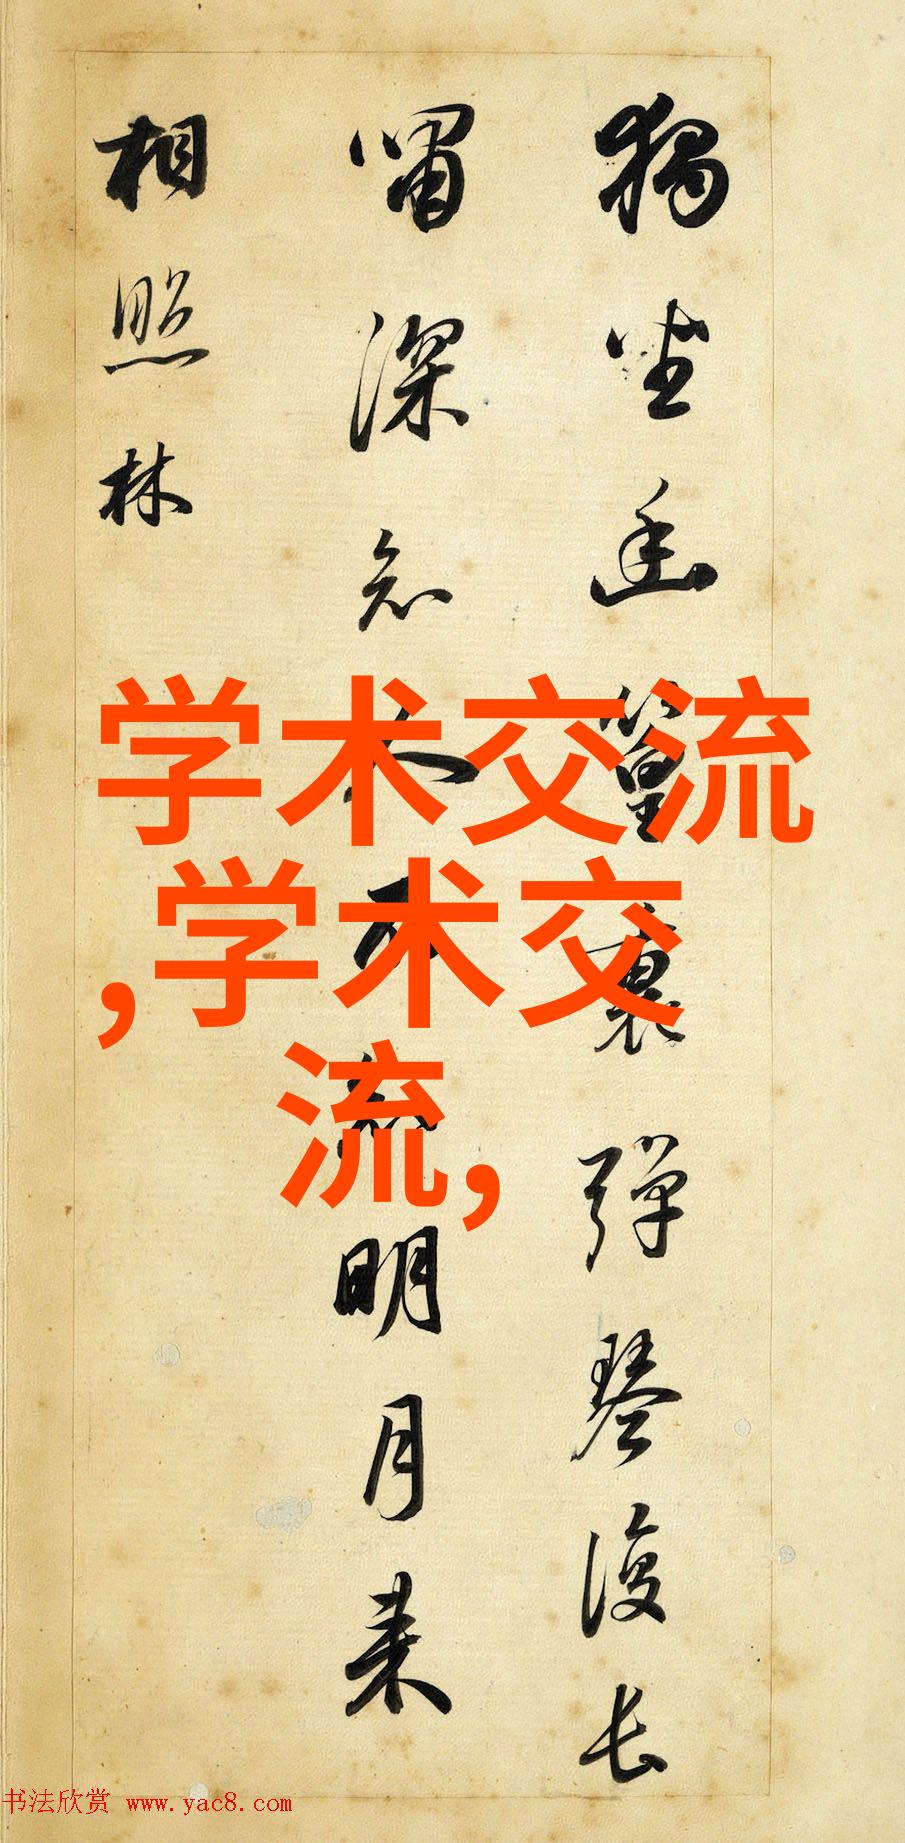 獨坐幽篁裏彈琴復長
嘯深知人不知明月來
相照林
学术交流
,学术交
流,
书法欣赏 www.yac8.com